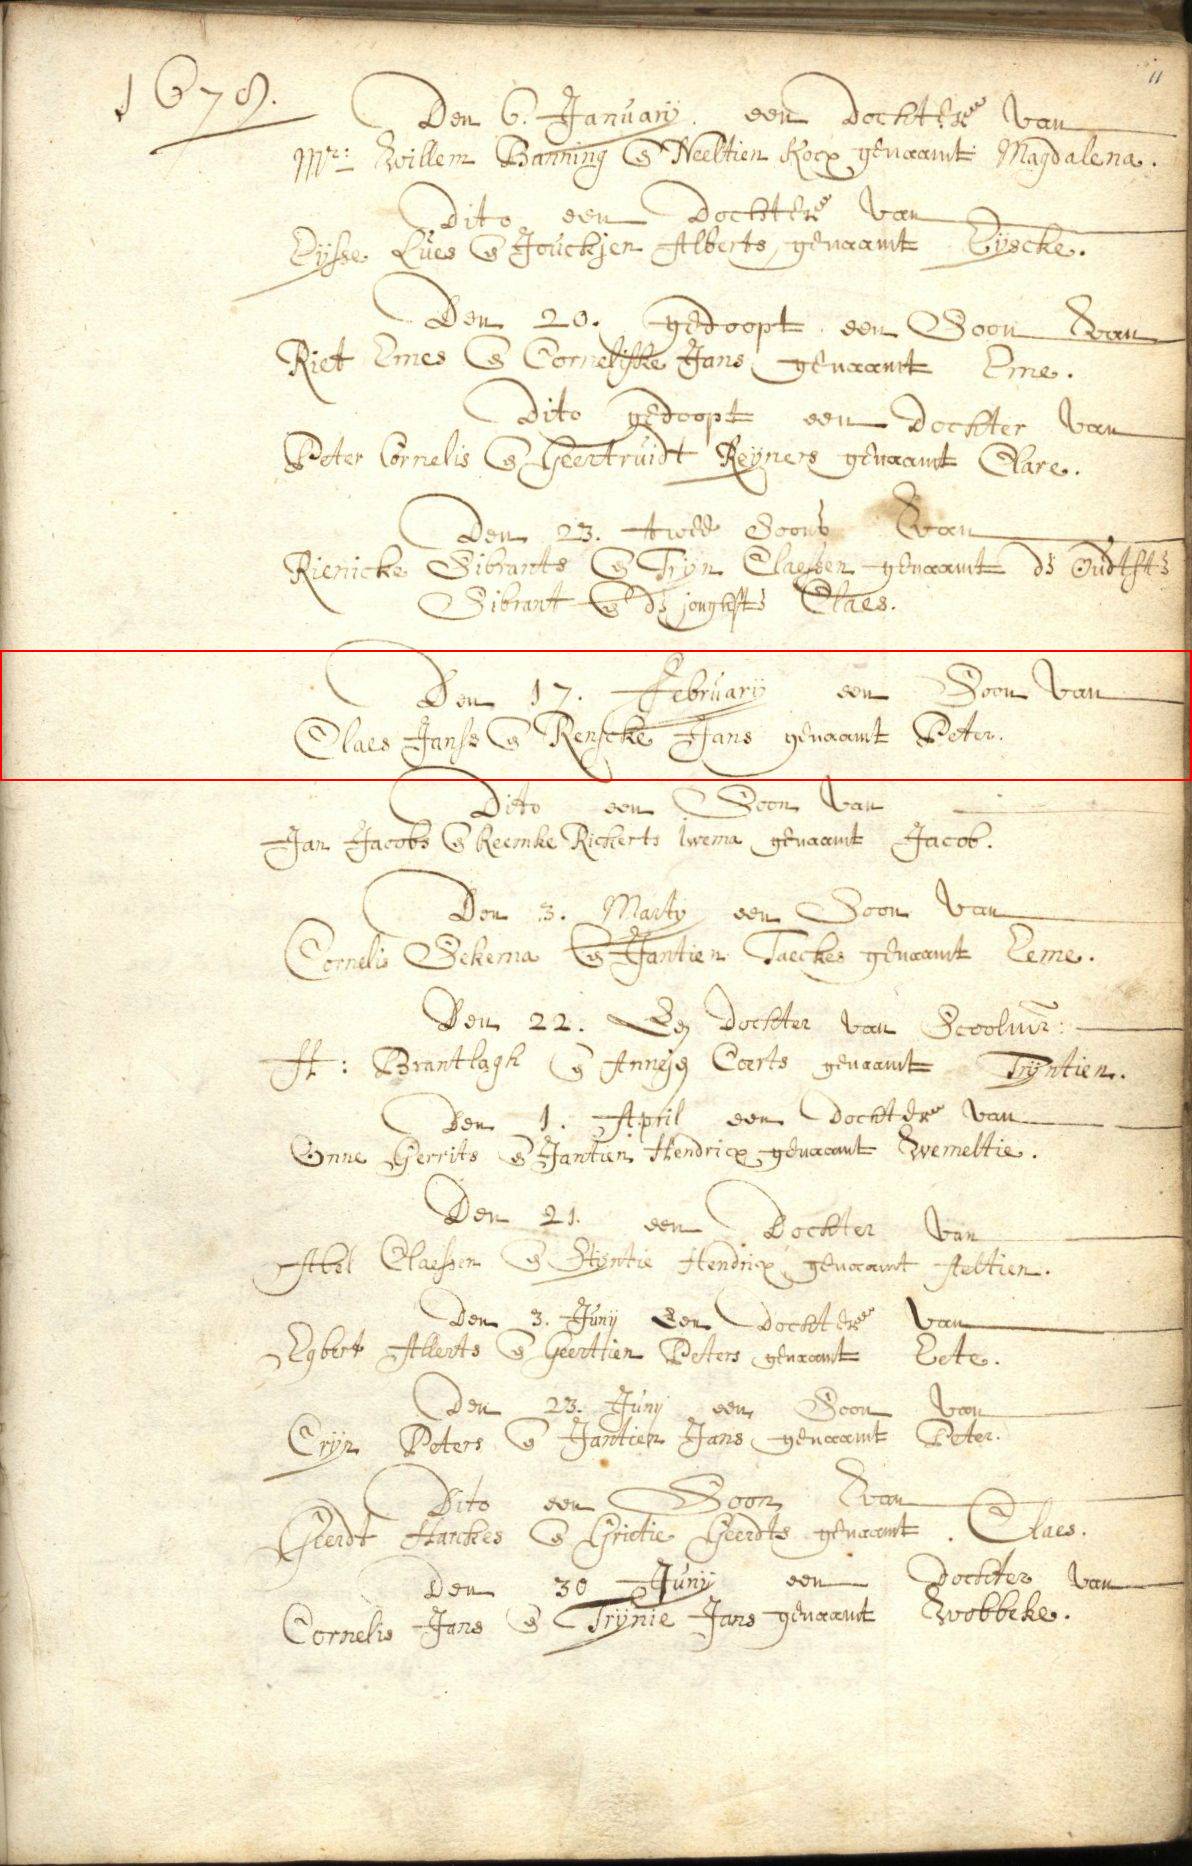 11
1678.
Den 6. January. een dochter van
Mr: Willem Banning & Neeltien Kocx genaamt Magdalena.
Dito een Dochter van
Eysse Lues & Jouckjen Alberts genaamt Eyscke.
Den 20. gedoopt een Soon van
Riet Emes & Corneliske Jans genaamt Eme.
Dito gedoopt een Dochter van
Peter Cornelis & Geertruidt Reyners genaamt Clare.
Den 23. twee Soons van
Rienicke Sibrants & Tryn Claessen genaamt de oudtste
Sibrant & de jonghste Claes.
Den 17. February een Soon van
Claes Janss & Renscke Jans genaamt Peter.
Dito een Soon van
Jan Jacobs & Reemke Rickerts Iwema genaamt Jacob.
Den 3. Marty een Soon van
Cornelis Sekema & Jantien Taeckes genaamt Eeme.
Den 22. Een dochter van Scoolmr:
H: Brantlagh & Annejen Coerts genaamt Tryntien.
Den 1. April een dochter van
Onne Gerrits & Jantien Hendricx genaamt Wemeltie.
Den 21. een Dochter van
Abel Claessen & Styntie Hendricx genaamt Aeltien.
Den 3. Juny Een dochter van
Egbert Alberts & Geerttien Peters genaamt Eete.
Den 23. Juny een Soon van
Cryn Peters & Jantien Jans genaamt Peter.
Dito een Soon van
Geerdt Harckes & Grietie Geerdts genaamt. Claes.
Den 30 Juny een Dochter van
Cornelis Jans & Trynie Jans genaamt Wobbeke.